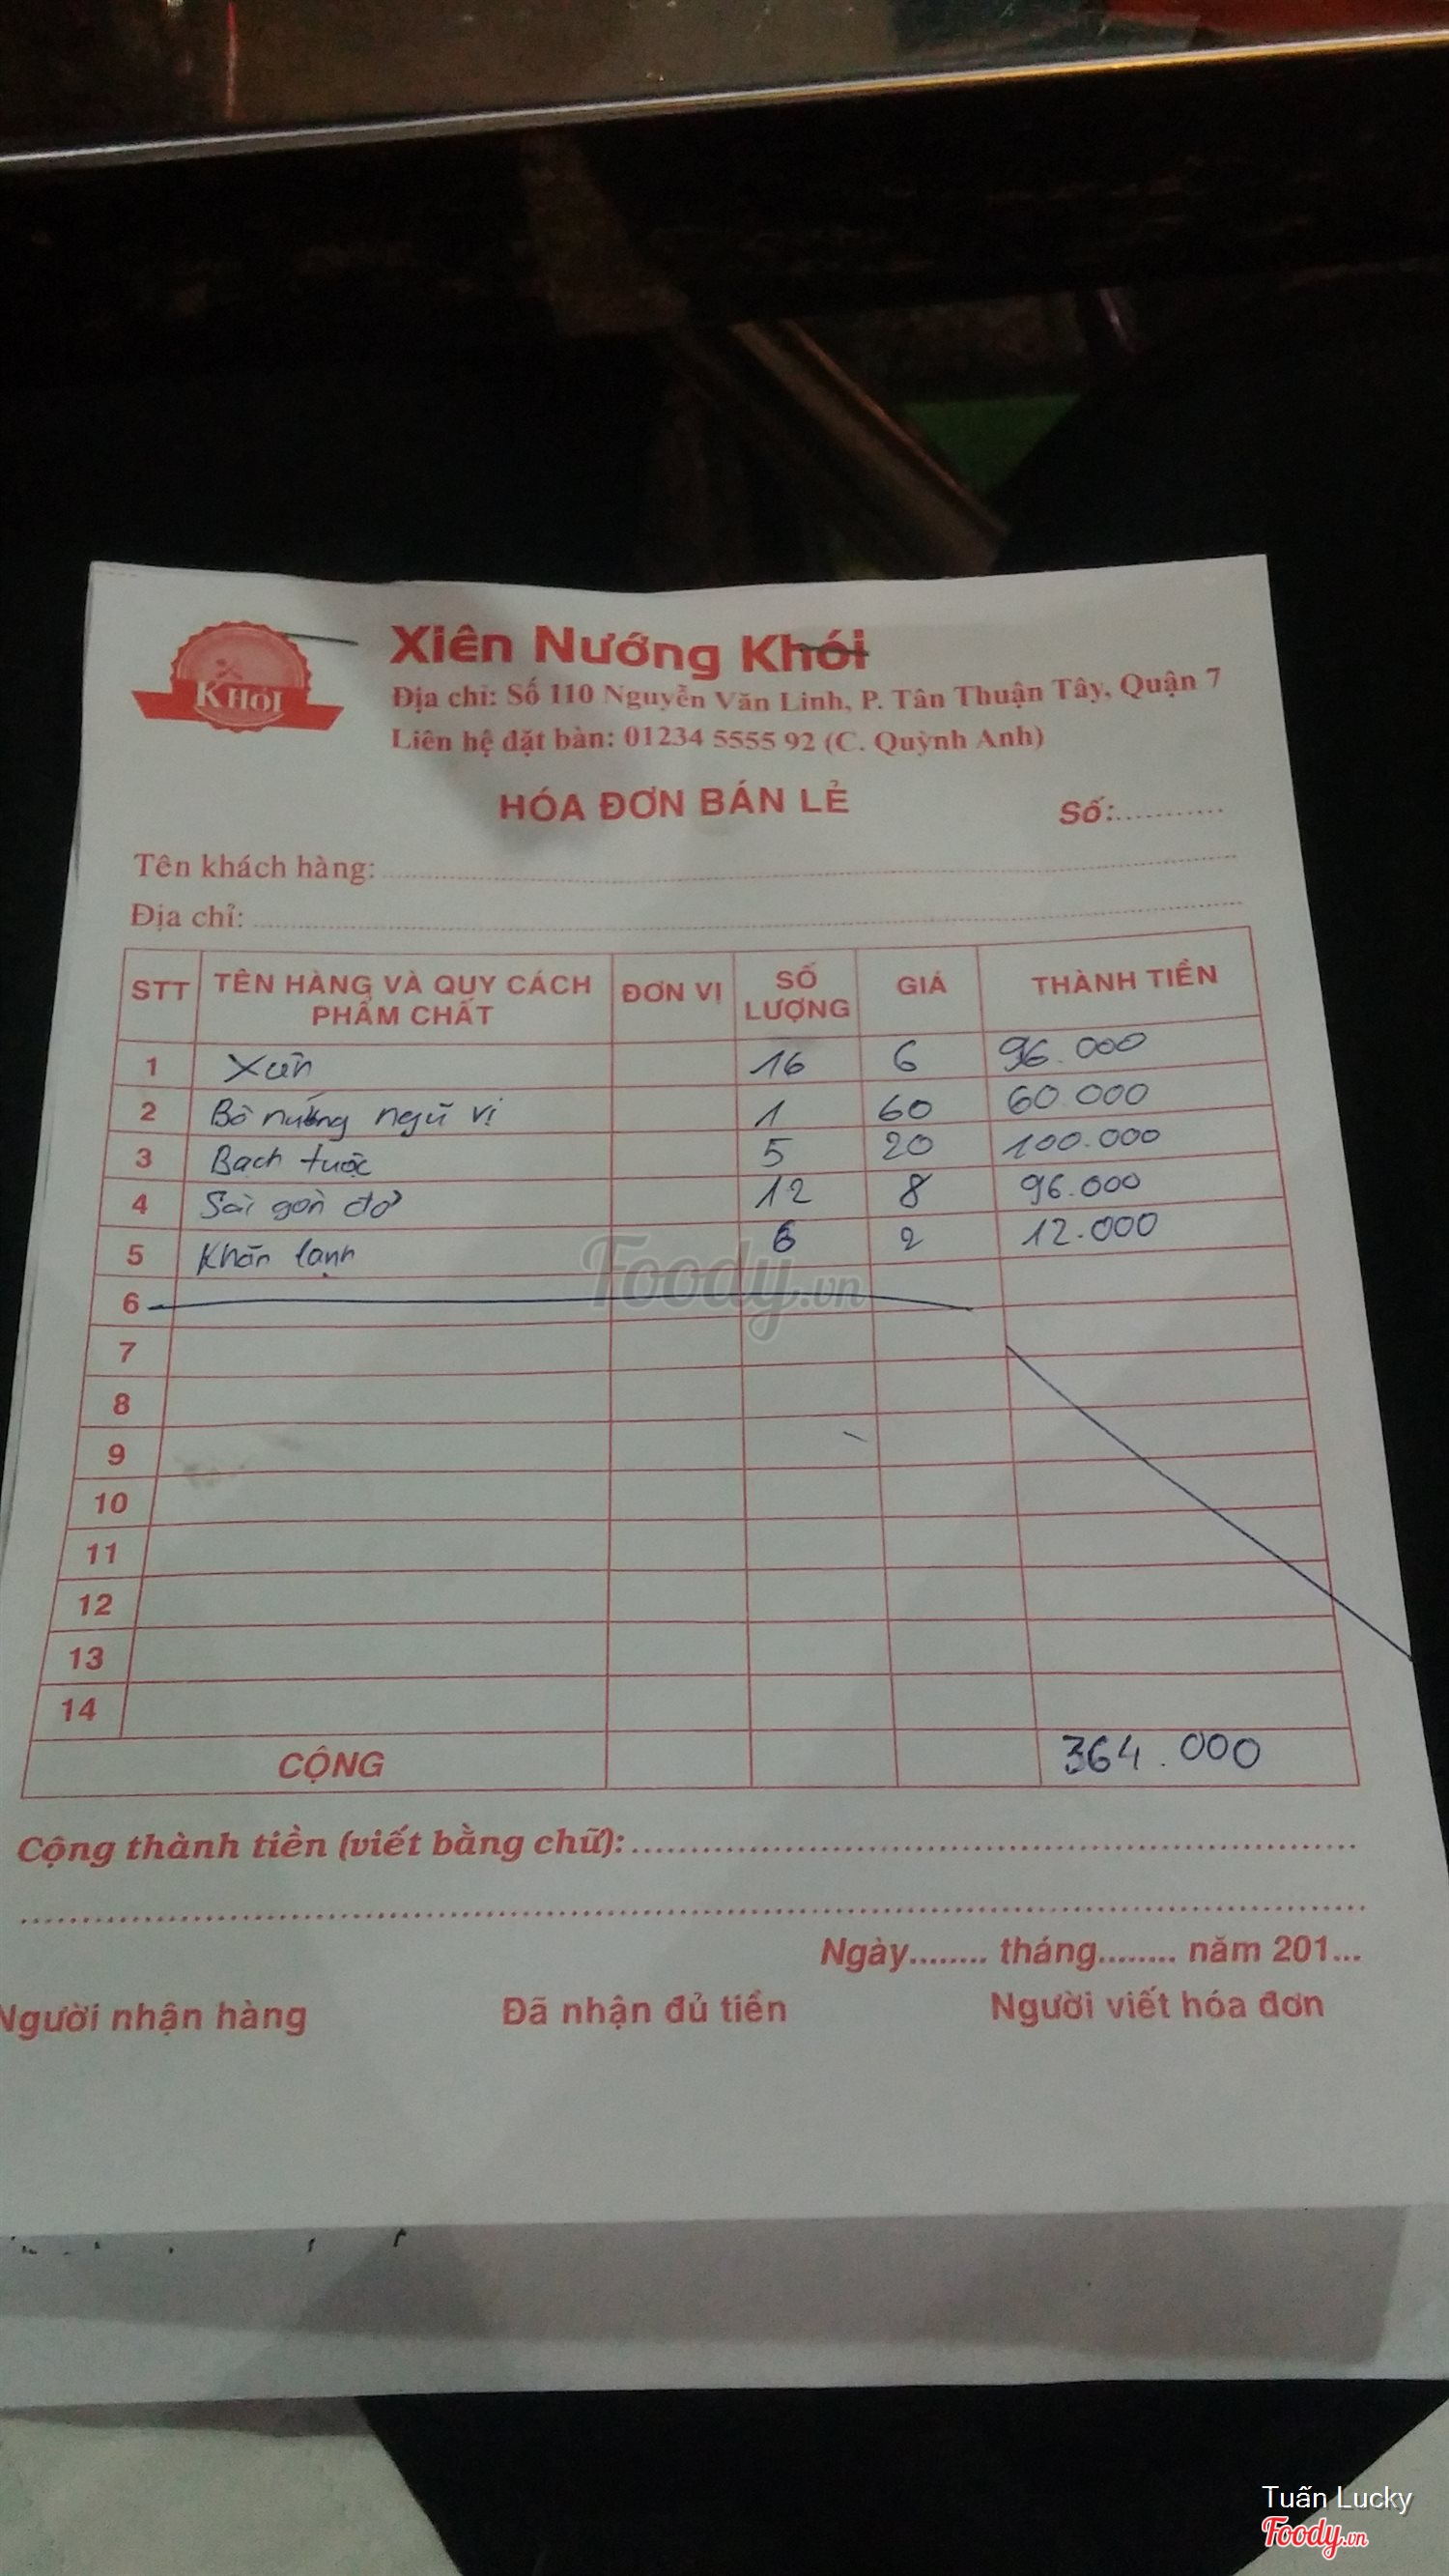 KHÓI
Xiên Nướng Khói
Địa chỉ: Số 110 Nguyễn Văn Linh, P. Tân Thuận Tây, Quận 7
Liên hệ đặt bàn: 01234 5555 92 (C. Quỳnh Anh)
HÓA ĐƠN BÁN LẺ
Số:...........
Tên khách hàng:
Địa chỉ:
STT TÊN HÀNG VÀ QUY CÁCH PHẨM CHẤT ĐƠN VỊ SỐ LƯỢNG GIÁ THÀNH TIỀN
1 16 6 96.000
2 Bò nướng ngũ vị 1 60 60.000
3 Bạch tuộc 5 20 100.000
4 Sài gòn đỏ 12 8 96.000
5 Khăn lạnh 6 2 12.000
6
7
8
9
10
11
12
13
14
CỘNG 364.000
Cộng thành tiền (viết bằng chữ):
Ngày........ tháng........ năm 201...
Người nhận hàng Đã nhận đủ tiền Người viết hóa đơn
Foody.vn
Tuấn Lucky
Foody.vn